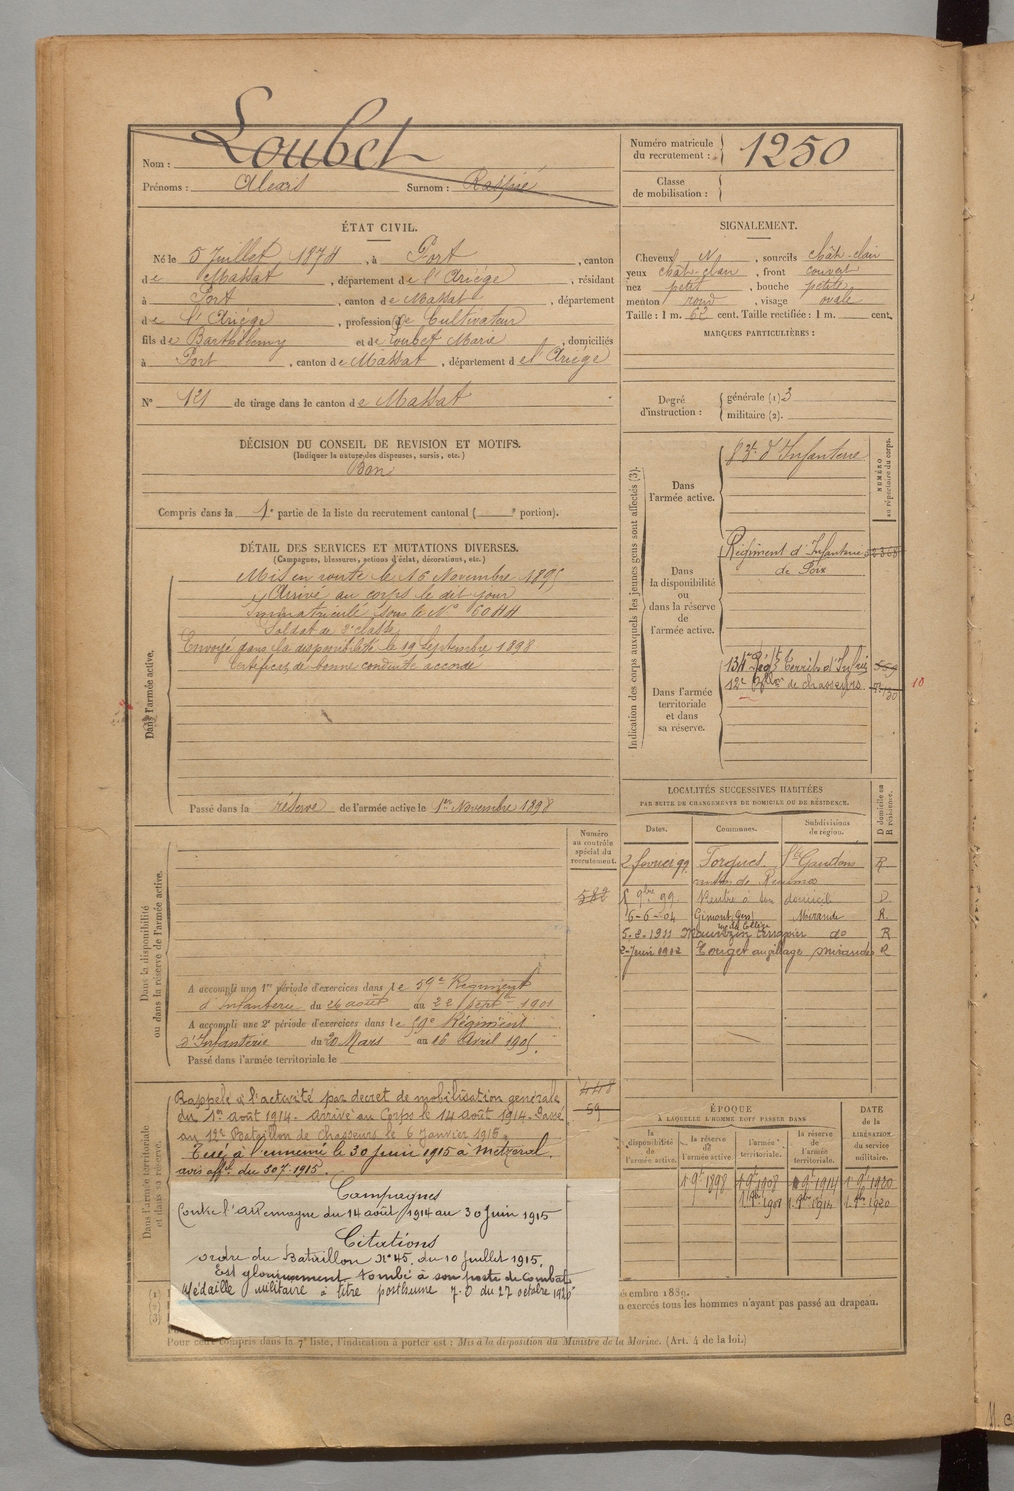 Nom : Loubet
Prénoms : Alexis Surnom :
Numéro matricule du recrutement : 1250
Classe de mobilisation :
ÉTAT CIVIL.
Né le 5 Juillet 1874, à Port, canton
de Massat, département de l'Ariège, résidant
à Port, canton de Massat, département
de l'Ariège, profession de Cultivateur
fils de Barthélemy et de Loubet Marie, domiciliés
à Port, canton de Massat, département de l'Ariège
N° 121 de tirage dans le canton de Massat
SIGNALEMENT.
Cheveux N, sourcils chât-clair
yeux chât-clair, front couvert
nez petit, bouche petite
menton rond, visage ovale
Taille : 1 m. 62 cent. Taille rectifiée : 1 m. cent.
MARQUES PARTICULIÈRES :
Degré d'instruction : générale (1) 3
militaire (2).
DÉCISION DU CONSEIL DE REVISION ET MOTIFS.
(Indiquer la nature des dispenses, sursis, etc.)
Bon
Compris dans la 1e partie de la liste du recrutement cantonal ( e portion).
DÉTAIL DES SERVICES ET MUTATIONS DIVERSES.
(Campagnes, blessures, actions d'éclat, décorations, etc.)
Dans l'armée active.
Mis en route le 16 Novembre 1895
Arrivé au corps le dit jour
Immatriculé sous le N°
Soldat de 2e classe
Envoyé dans la disponibilité le 19 Septembre 1898
Certificat de bonne conduite accordé
Passé dans la réserve de l'armée active le 1er Novembre 1898
Indication des corps auxquels les jeunes gens sont affectés (3).
NUMÉRO au répertoire du corps.
Dans l'armée active.
d'Infanterie
Dans la disponibilité ou dans la réserve de l'armée active.
Régiment d'Infanterie
de Foix
Dans l'armée territoriale et dans sa réserve.
134e Régt Territ. d'Infrie
12e Btllon de chasseurs
10
LOCALITÉS SUCCESSIVES HABITÉES
PAR SUITE DE CHANGEMENTS DE DOMICILE OU DE RÉSIDENCE.
Dates. Communes. Subdivisions de région. D domicile ou R résidence.
2 février 99 St Gaudens R.
9bre 99 Rentré à son domicile D.
6-6-04 Gimont Gers Mirande R.
5-2-1911 Mauvezin do R
2-Juin 1912 Touget au village Mirande R
Dans la disponibilité ou dans la réserve de l'armée active.
Numéro au contrôle spécial du recrutement.
582
A accompli une 1re période d'exercices dans le 59e Régiment
d'Infanterie du 26 août au 22 septbre 1901
A accompli une 2e période d'exercices dans le 59e Régiment
d'Infanterie du 20 Mars au 16 Avril 1905.
Passé dans l'armée territoriale le
Dans l'armée territoriale et dans sa réserve.
448
59
Rappelé à l'activité par décret de mobilisation générale
du 1er août 1914. Arrivé au Corps le 14 août 1914. Passé
au 12e Bataillon de Chasseurs le 6 Janvier 1915.
Tué à l'ennemi le 30 Juin 1915 à Metzeral.
avis offl. du 30.7.1915.
Campagnes
Contre l'Allemagne du 14 août 1914 au 30 Juin 1915
Citations
ordre du Bataillon N° 45. du 10 Juillet 1915.
Est glorieusement tombé à son poste de Combat
Médaille militaire à titre posthume J.O du 27 octobre 1920
ÉPOQUE
À LAQUELLE L'HOMME DOIT PASSER DANS
DATE de la LIBÉRATION du service militaire.
la disponibilité de l'armée active. la réserve de l'armée active. l'armée territoriale. la réserve de l'armée territoriale.
1 9bre 1898 1 9bre 1908 1 9bre 1914 1 9bre 1920
embre 1889.
n exercés tous les hommes n'ayant pas passé au drapeau.
compris dans la 7e liste, l'indication à porter est : Mis à la disposition du Ministre de la Marine. (Art. 4 de la loi.)